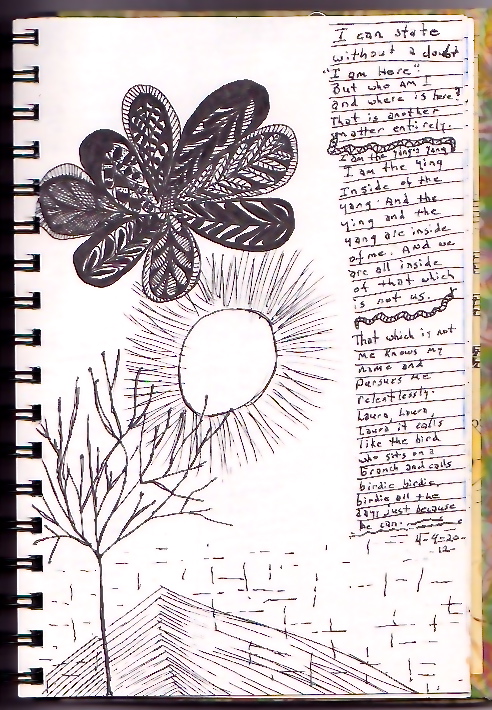 I can state
without a doubt
"I am Here".
But who am I
and where is here?
That is another
matter entirely.
I am the ying's yang
I am the ying
Inside of the
yang. And the
ying and the
yang are inside
of me. And we
are all inside
of that which
is not us.
That which is not
me knows my
name and
pursues me
relentlessly.
Laura, Laura,
Laura it calls
like the bird
who sits on a
branch and calls
birdie birdie,
birdie all the
day, just because
he can.
4-9-20-
12-